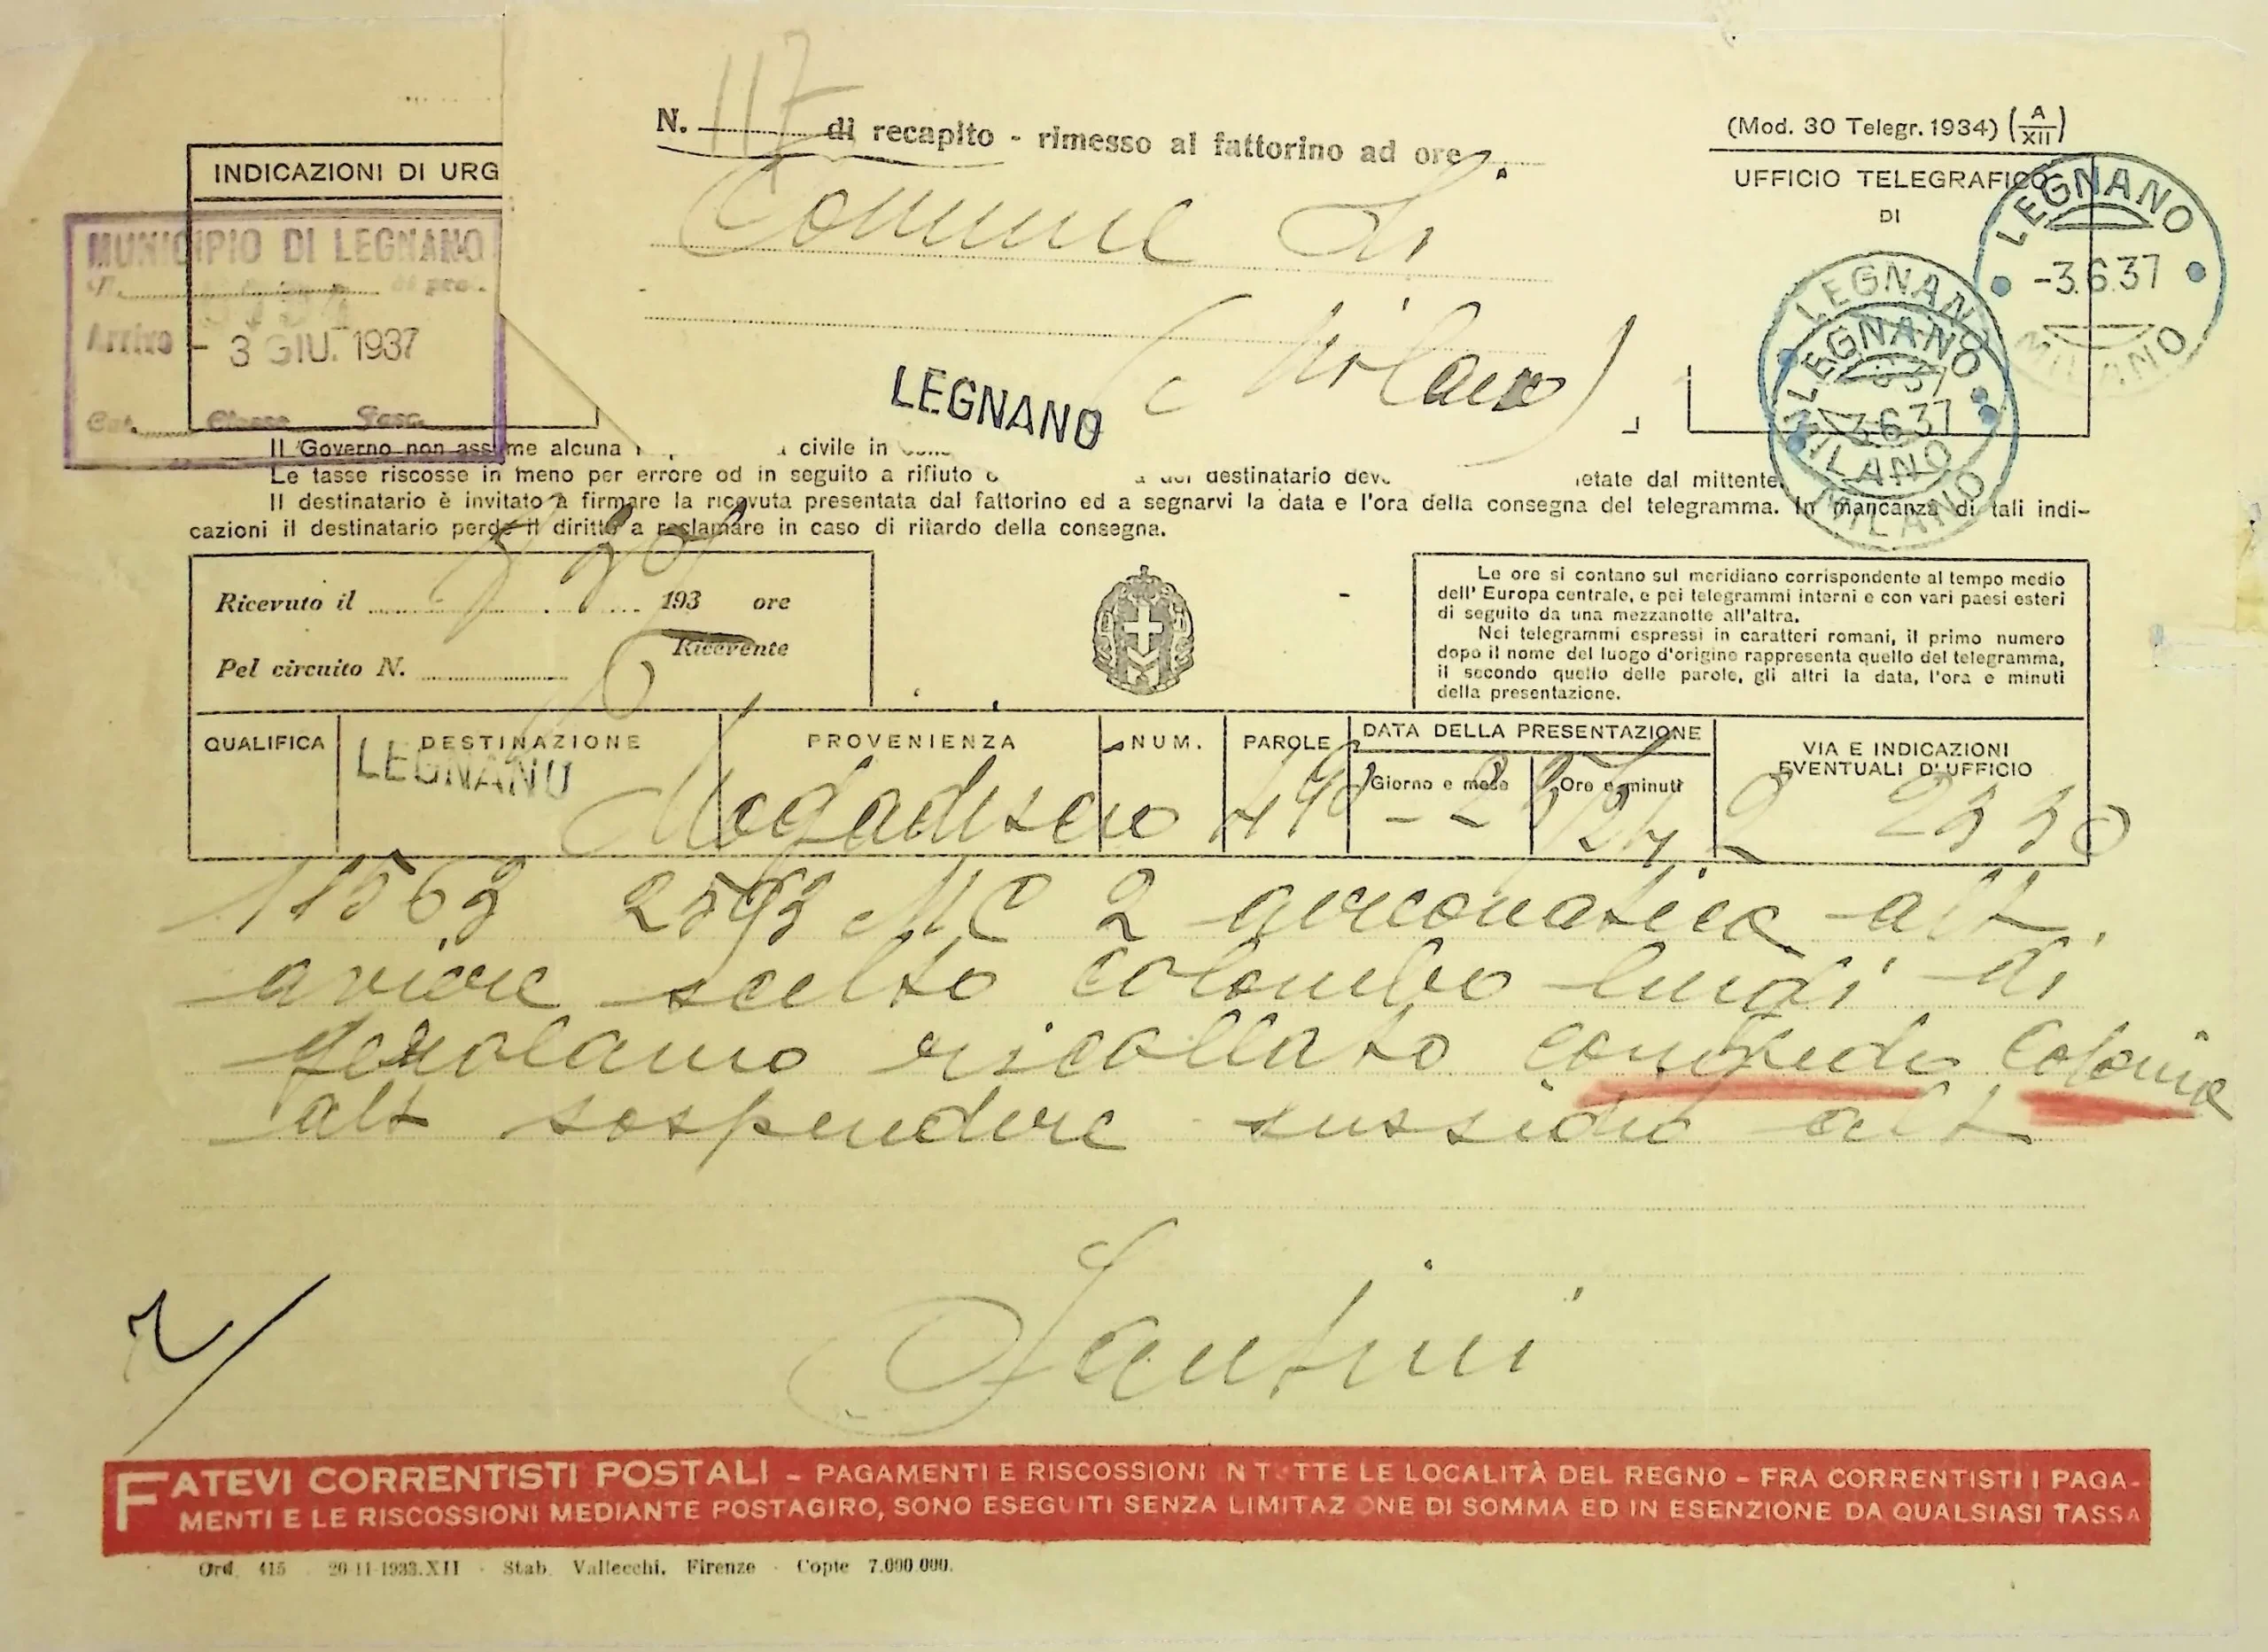 N. 117 di recapito - rimesso al fattorino ad ore
(Mod. 30 Telegr. 1934) (A/XII)
INDICAZIONI DI URG
UFFICIO TELEGRAFICO
DI
Comune di
LEGNANO
(Milano)
MUNICIPIO DI LEGNANO
N. di pro.
Arrivo - 3 GIU. 1937
Cat. Classe Fasc.
LEGNANO
-3.6.37
MILANO
LEGNANO
MILANO
LEGNANO
3.6.37
MILANO
Il Governo non assume alcuna civile in
Le tasse riscosse in meno per errore od in seguito a rifiuto destinatario dev etate dal mittente
Il destinatario è invitato a firmare la ricevuta presentata dal fattorino ed a segnarvi la data e l'ora della consegna del telegramma. In mancanza di tali indi-
cazioni il destinatario perde il diritto a reclamare in caso di ritardo della consegna.
Ricevuto il 193 ore
Pel circuito N. Ricevente
Le ore si contano sul meridiano corrispondente al tempo medio
dell' Europa centrale, e pei telegrammi interni e con vari paesi esteri
di seguito da una mezzanotte all'altra.
Nei telegrammi espressi in caratteri romani, il primo numero
dopo il nome del luogo d'origine rappresenta quello del telegramma,
il secondo quello delle parole, gli altri la data, l'ora e minuti
della presentazione.
QUALIFICA DESTINAZIONE PROVENIENZA NUM. PAROLE DATA DELLA PRESENTAZIONE VIA E INDICAZIONI
EVENTUALI D'UFFICIO
Giorno e mese Ore e minuti
LEGNANO Mogadiscio 2330
11563 2593 MC 2 aereonatica alt
aviere scelto Colombo luigi di
gerolamo ricollato congedo Colonia
alt sospendere sussidio alt
Santini
FATEVI CORRENTISTI POSTALI - PAGAMENTI E RISCOSSIONI N T TTE LE LOCALITÀ DEL REGNO - FRA CORRENTISTI I PAGA-
MENTI E LE RISCOSSIONI MEDIANTE POSTAGIRO, SONO ESEGUITI SENZA LIMITAZ ONE DI SOMMA ED IN ESENZIONE DA QUALSIASI TASSA
Ord. 415 20-11-1933.XII - Stab. Vallecchi, Firenze - Copie 7.000.000.